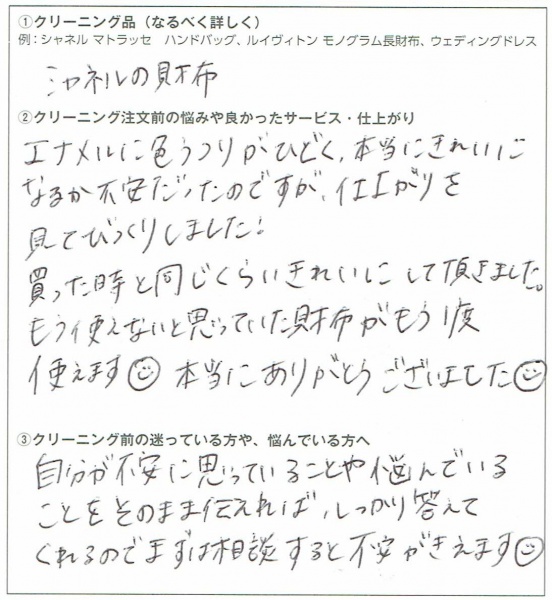 ①クリーニング品（なるべく詳しく）
例：シャネル マトラッセ　ハンドバッグ、ルイヴィトン モノグラム長財布、ウェディングドレス
シャネルの財布
②クリーニング注文前の悩みや良かったサービス・仕上がり
エナメルに色うつりがひどく、本当にきれいに
なるか不安だったのですが、仕上がりを
見てびっくりしました！
買った時と同じくらいきれいにして頂きました。
もう使えないと思っていた財布がもう1度
使えます☺ 本当にありがとうございました☺
③クリーニング前の迷っている方や、悩んでいる方へ
自分が不安に思っていることや悩んでいる
ことをそのまま伝えれば、しっかり答えて
くれるのでまずは相談すると不安がきえます☺